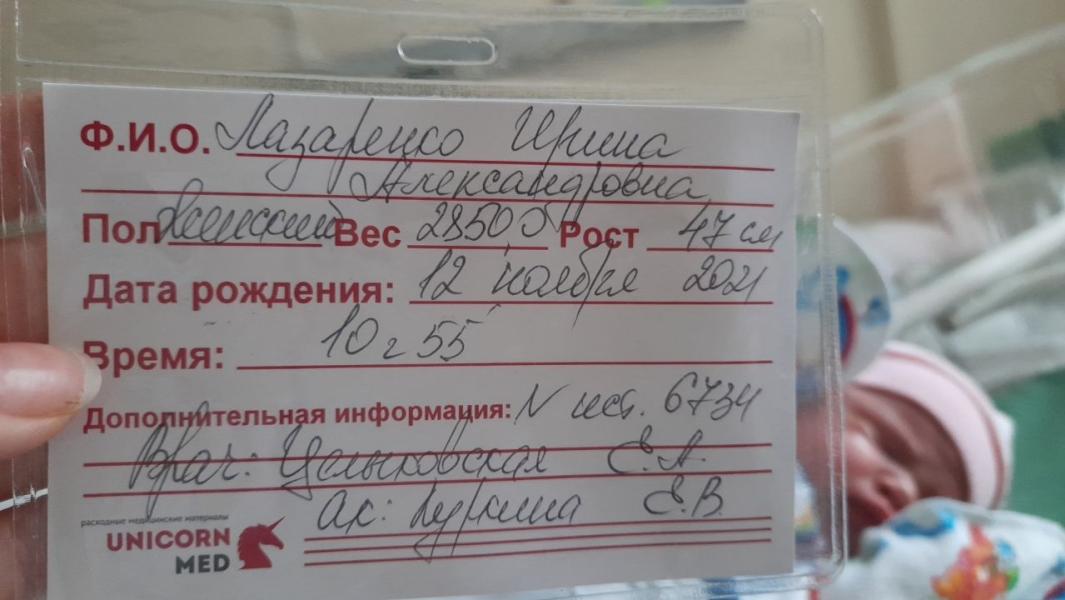 Ф.И.О. Лазаренко Ирина
Александровна
Пол женский Вес 2850 Рост 47 см
Дата рождения: 12 ноября 2021
Время: 10 ч 55
Дополнительная информация: N ист. 6734
Врач: Е.А.
Ак: Куркина Е.В.
расходные медицинские материалы
UNICORN
MED